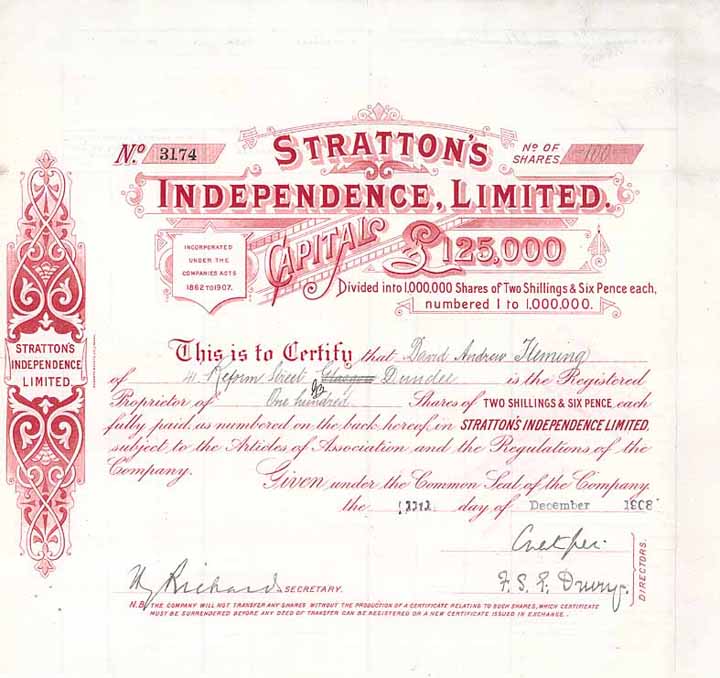 No. 3174
STRATTON'S
No OF SHARES 100
INDEPENDENCE, LIMITED.
INCORPORATED
UNDER THE
COMPANIES ACTS
1862 TO 1907.
CAPITAL £125,000
Divided into 1,000,000 Shares of Two Shillings & Six Pence each,
numbered 1 to 1,000,000.
STRATTON'S
INDEPENDENCE
LIMITED.
This is to Certify that David Andrew Fleming
of 41 Reform Street Glasgow Dundee is the Registered
Proprietor of One hundred Shares of TWO SHILLINGS & SIX PENCE each
fully paid, as numbered on the back hereof, in STRATTON'S INDEPENDENCE, LIMITED,
subject to the Articles of Association and the Regulations of the
Company. Given under the Common Seal of the Company
the day of December 1908
F. S. P. Drury
DIRECTORS.
Richard SECRETARY.
N.B. THE COMPANY WILL NOT TRANSFER ANY SHARES WITHOUT THE PRODUCTION OF A CERTIFICATE RELATING TO SUCH SHARES, WHICH CERTIFICATE
MUST BE SURRENDERED BEFORE ANY DEED OF TRANSFER CAN BE REGISTERED OR A NEW CERTIFICATE ISSUED IN EXCHANGE.